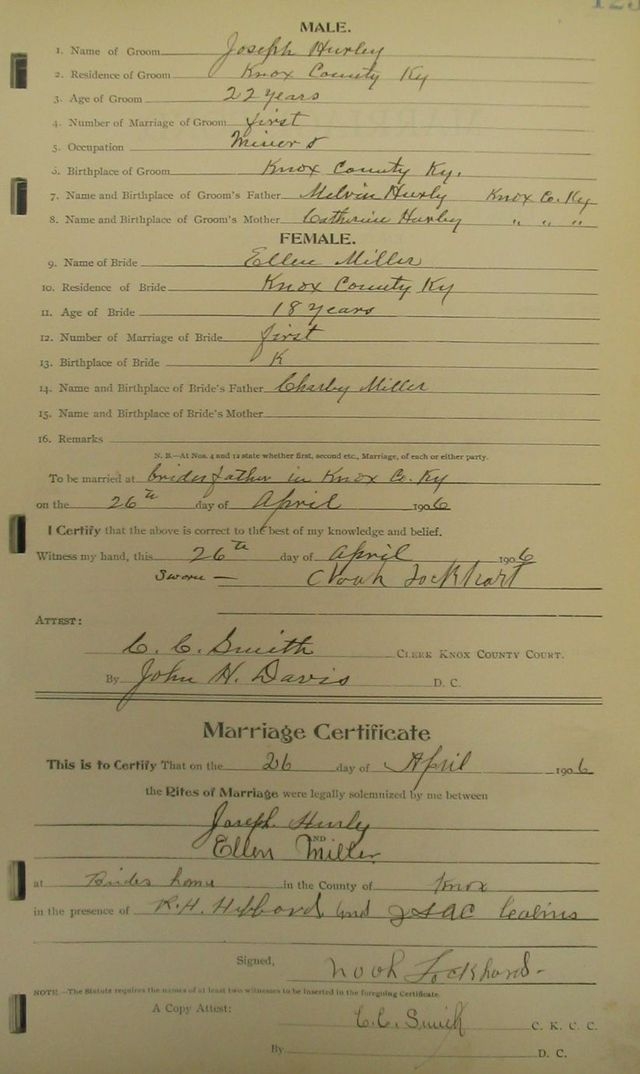 123
MALE.
1. Name of Groom Joseph Hurley
2. Residence of Groom Knox County Ky
3. Age of Groom 22 years
4. Number of Marriage of Groom first
5. Occupation Miner
6. Birthplace of Groom Knox County Ky.
7. Name and Birthplace of Groom's Father Melvin Hurly Knox Co. Ky
8. Name and Birthplace of Groom's Mother Catherine Hurley " " "
FEMALE.
9. Name of Bride Ellen Miller
10. Residence of Bride Knox County Ky
11. Age of Bride 18 years
12. Number of Marriage of Bride first
13. Birthplace of Bride K
14. Name and Birthplace of Bride's Father Charley Miller
15. Name and Birthplace of Bride's Mother
16. Remarks
N. B.—At Nos. 4 and 12 state whether first, second etc., Marriage, of each or either party.
To be married at brides father in Knox Co. Ky
on the 26th day of April 1906
I Certify that the above is correct to the best of my knowledge and belief.
Witness my hand, this 26th day of April 1906
Sworn — Noah Lockhart
ATTEST:
C. C. Smith CLERK KNOX COUNTY COURT.
By John H. Davis D. C.
Marriage Certificate
This is to Certify That on the 26 day of April 1906
the Rites of Marriage were legally solemnized by me between
Joseph Hurly
AND
Ellen Miller
at Brides home in the County of Knox
in the presence of R. H. Hibbard and
Signed, Noah Lockhard
NOTE.—The Statute requires the names of at least two witnesses to be inserted in the foregoing Certificate.
A Copy Attest: C. C. Smith C. K. C. C.
By D. C.